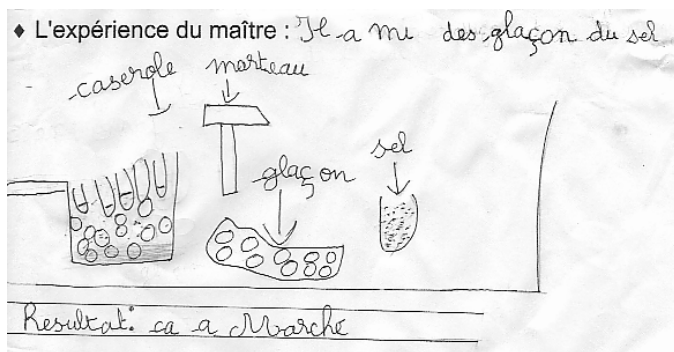 ♦ L'expérience du maître : Il a mi des glaçon du sel
caserole
marteau
glaçon
sel
Resultat: ca a Marché